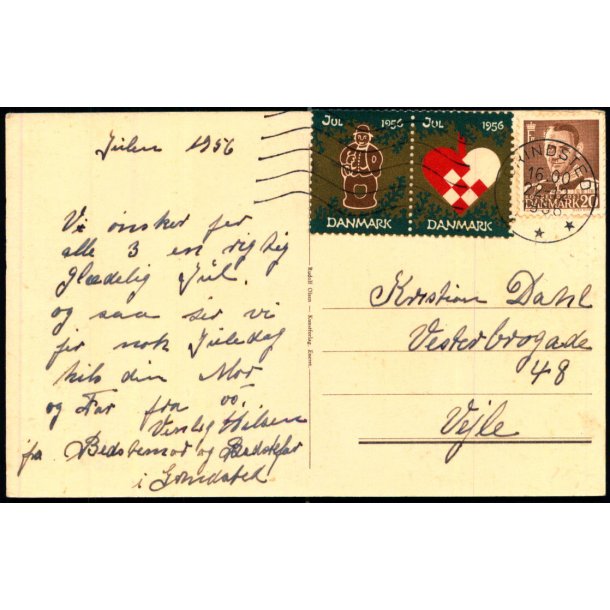 Julen 1956
Vi ønsker jer
alle 3 en rigtig
Glædelig Jul.
og saa ser vi
jer nok Juledag
hils din Mor
og Far fra os.
Venlig Hilsen
fra Bedstemor og Bedstefar
i
Rudolf Olsen - Kunstforlag, Eneret.
JUL 1956
DANMARK
JUL 1956
DANMARK
16.00
1956
DANMARK 20
Kristian Dahl
Vesterbrogade
48
Vejle